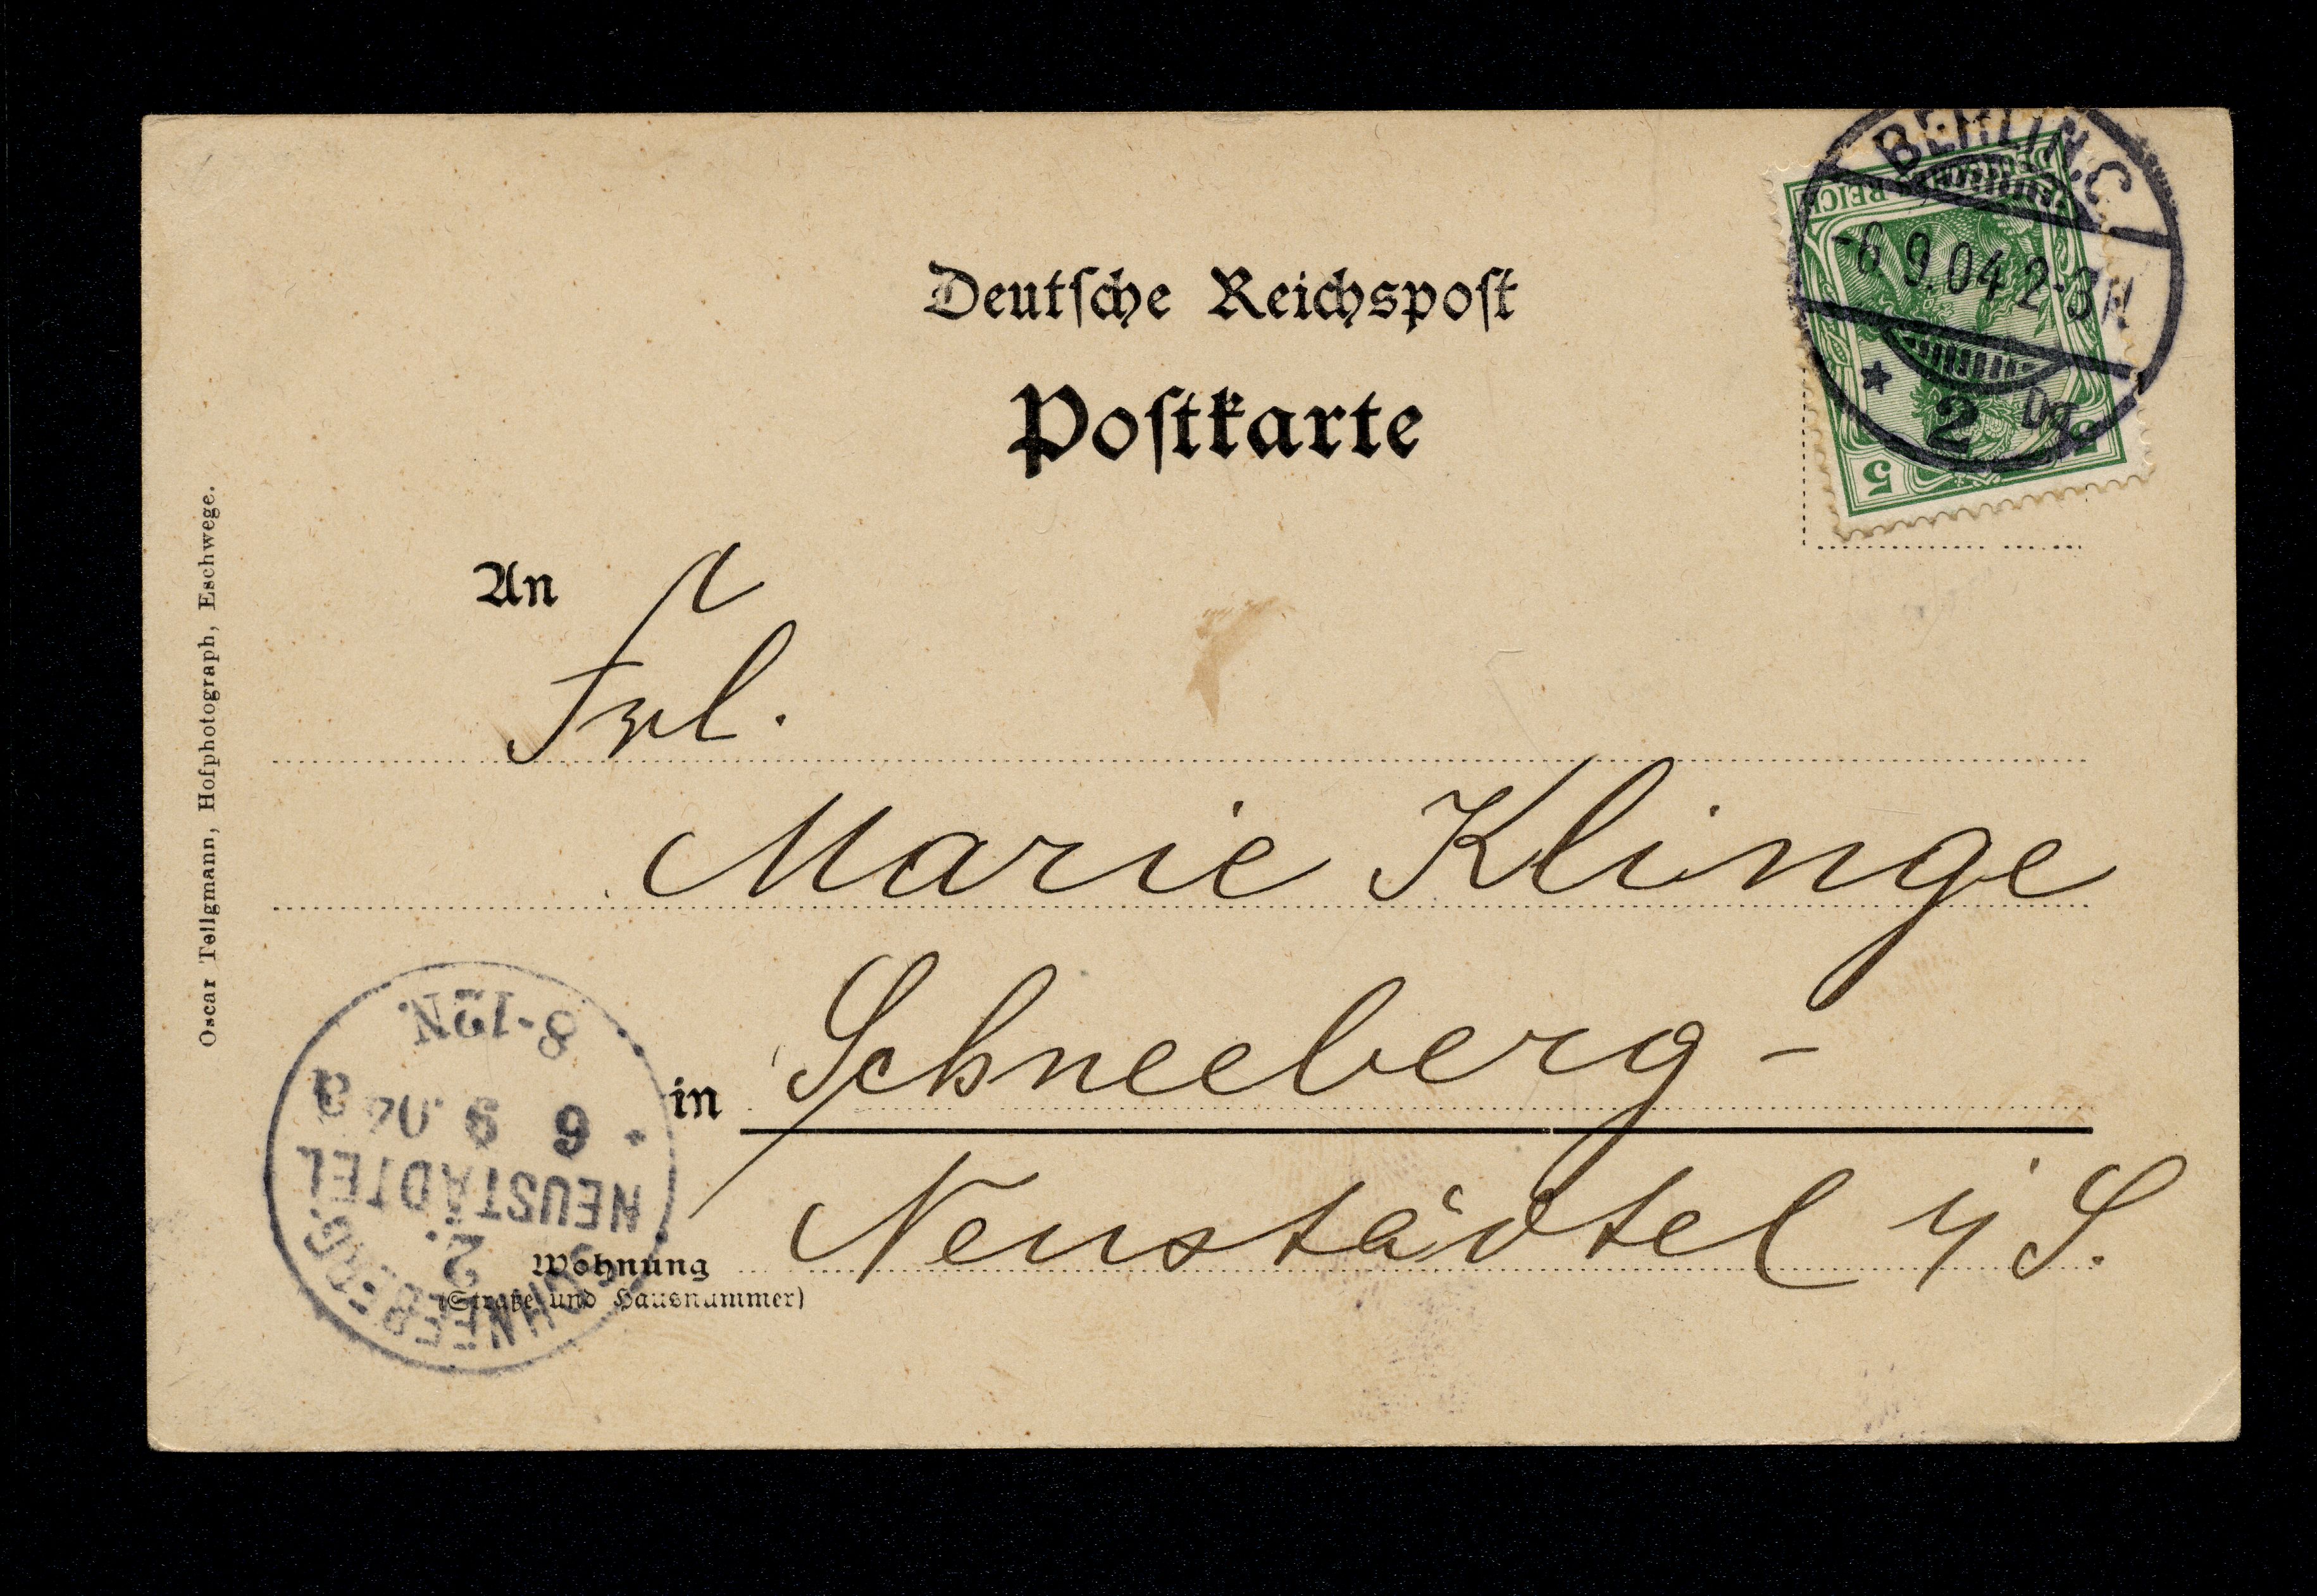 Deutsche Reichspost
Postkarte
BERLIN.C
-6 9.04 2-3N
* 2 Dg.
DEUTSCHES REICH
5 5
An
Frl.
Marie Klinge
in Schneeberg-
Neustädtel i/S.
Wohnung
(Straße und Hausnummer)
Oscar Tellgmann, Hofphotograph, Eschwege.
SCHNEEBERG
2.
NEUSTÄDTEL
* 6 9 04 a
8-12N.